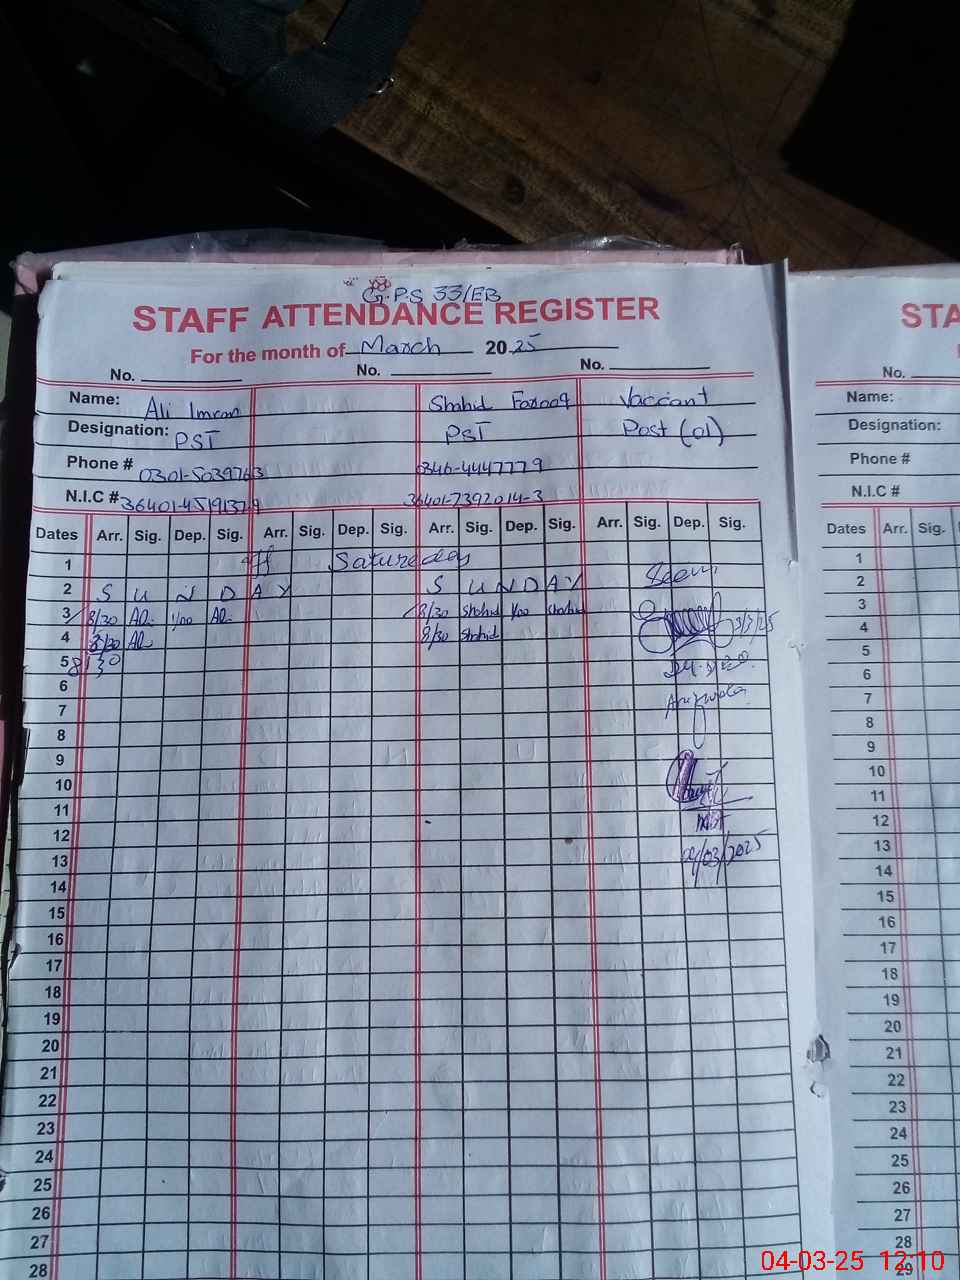 G.P.S 33/EB
STAFF ATTENDANCE REGISTER
For the month of March 2025
No. No. No.
Name: Ali Imran Shahid Farooq Vaccant
Designation: PST PST Post (01)
Phone # 0301-5039763 0346-4447779
N.I.C # 36401-4519137-9 36401-7392014-3
Dates Arr. Sig. Dep. Sig. Arr. Sig. Dep. Sig. Arr. Sig. Dep. Sig. Arr. Sig. Dep. Sig.
1 off Satureday
2 S U N D A Y S U N D A Y Seen
3 8/30 Ali 1/00 Ali 8/30 Shahid 1/00 Shahid 3/3/25
4 8/30 Ali 8/30 Shahid
5 8/30
6
7
8
9
10
11
12
13 04/03/2025
14
15
16
17
18
19
20
21
22
23
24
25
26
27
28
STA
No.
Name:
Designation:
Phone #
N.I.C #
Dates Arr. Sig.
1
2
3
4
5
6
7
8
9
10
11
12
13
14
15
16
17
18
19
20
21
22
23
24
25
26
27
28
29
04-03-25 12:10